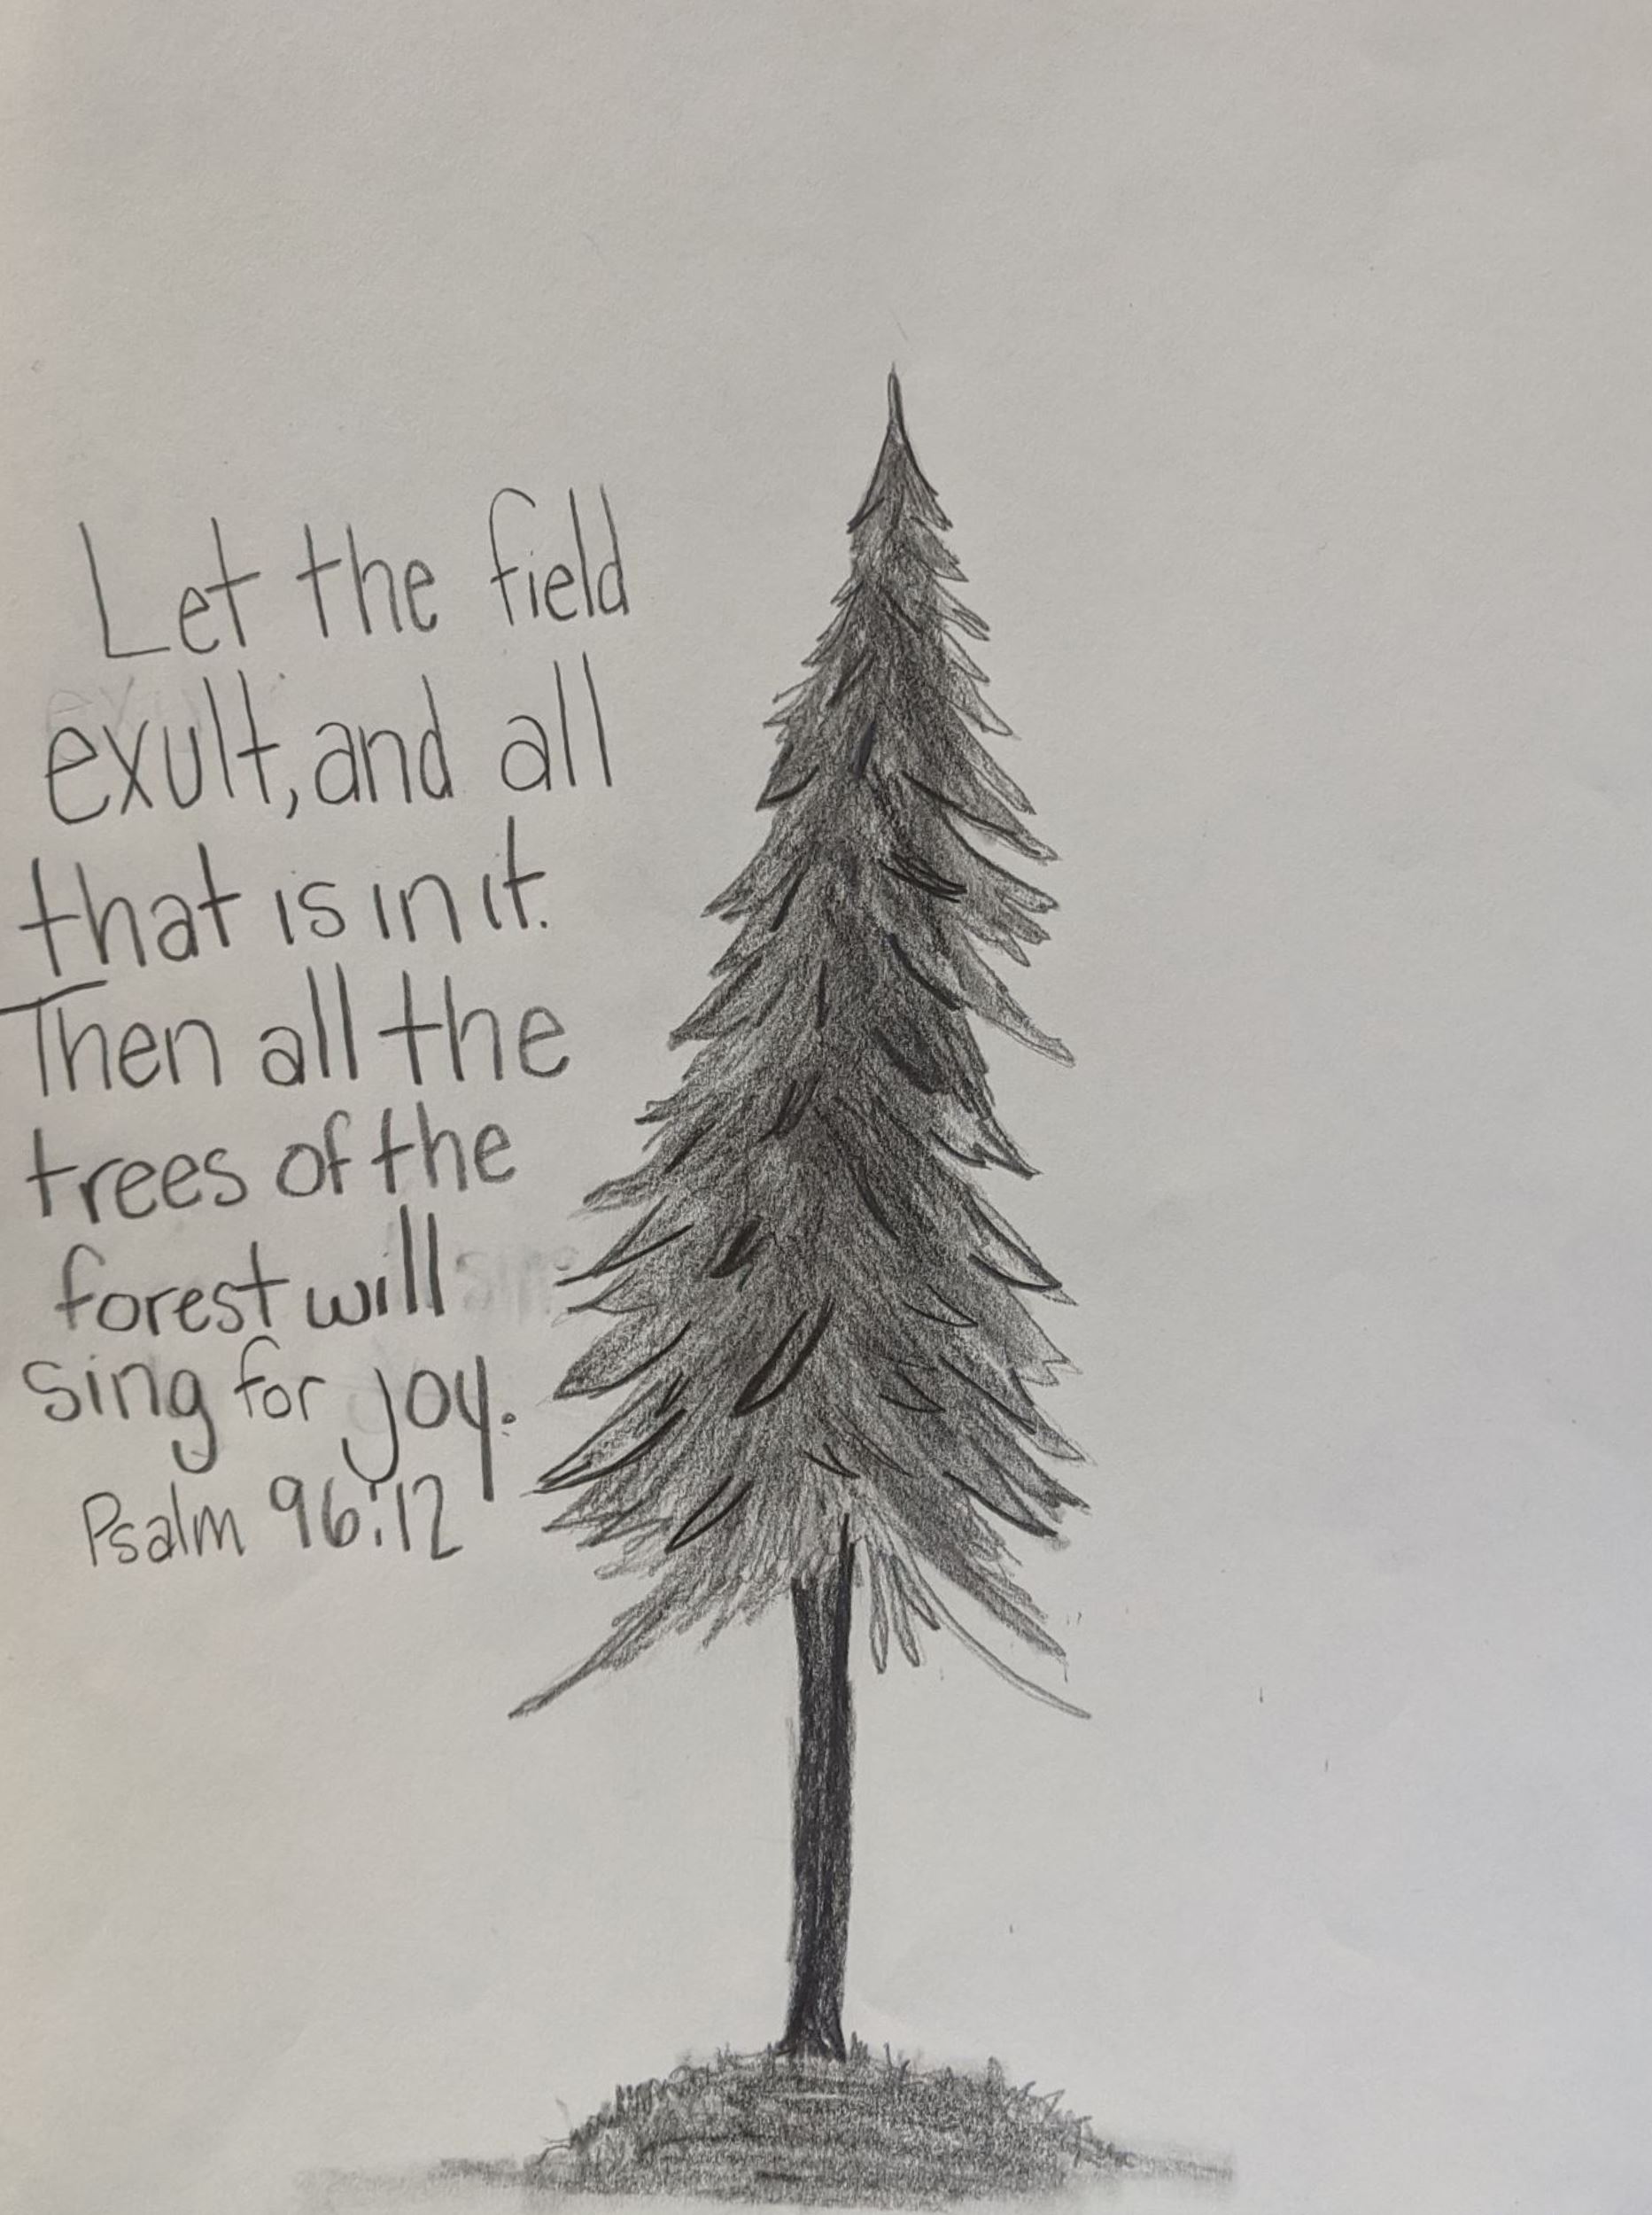 Let the field
exult, and all
that is in it.
Then all the
trees of the
forest will
sing for joy.
Psalm 96:12